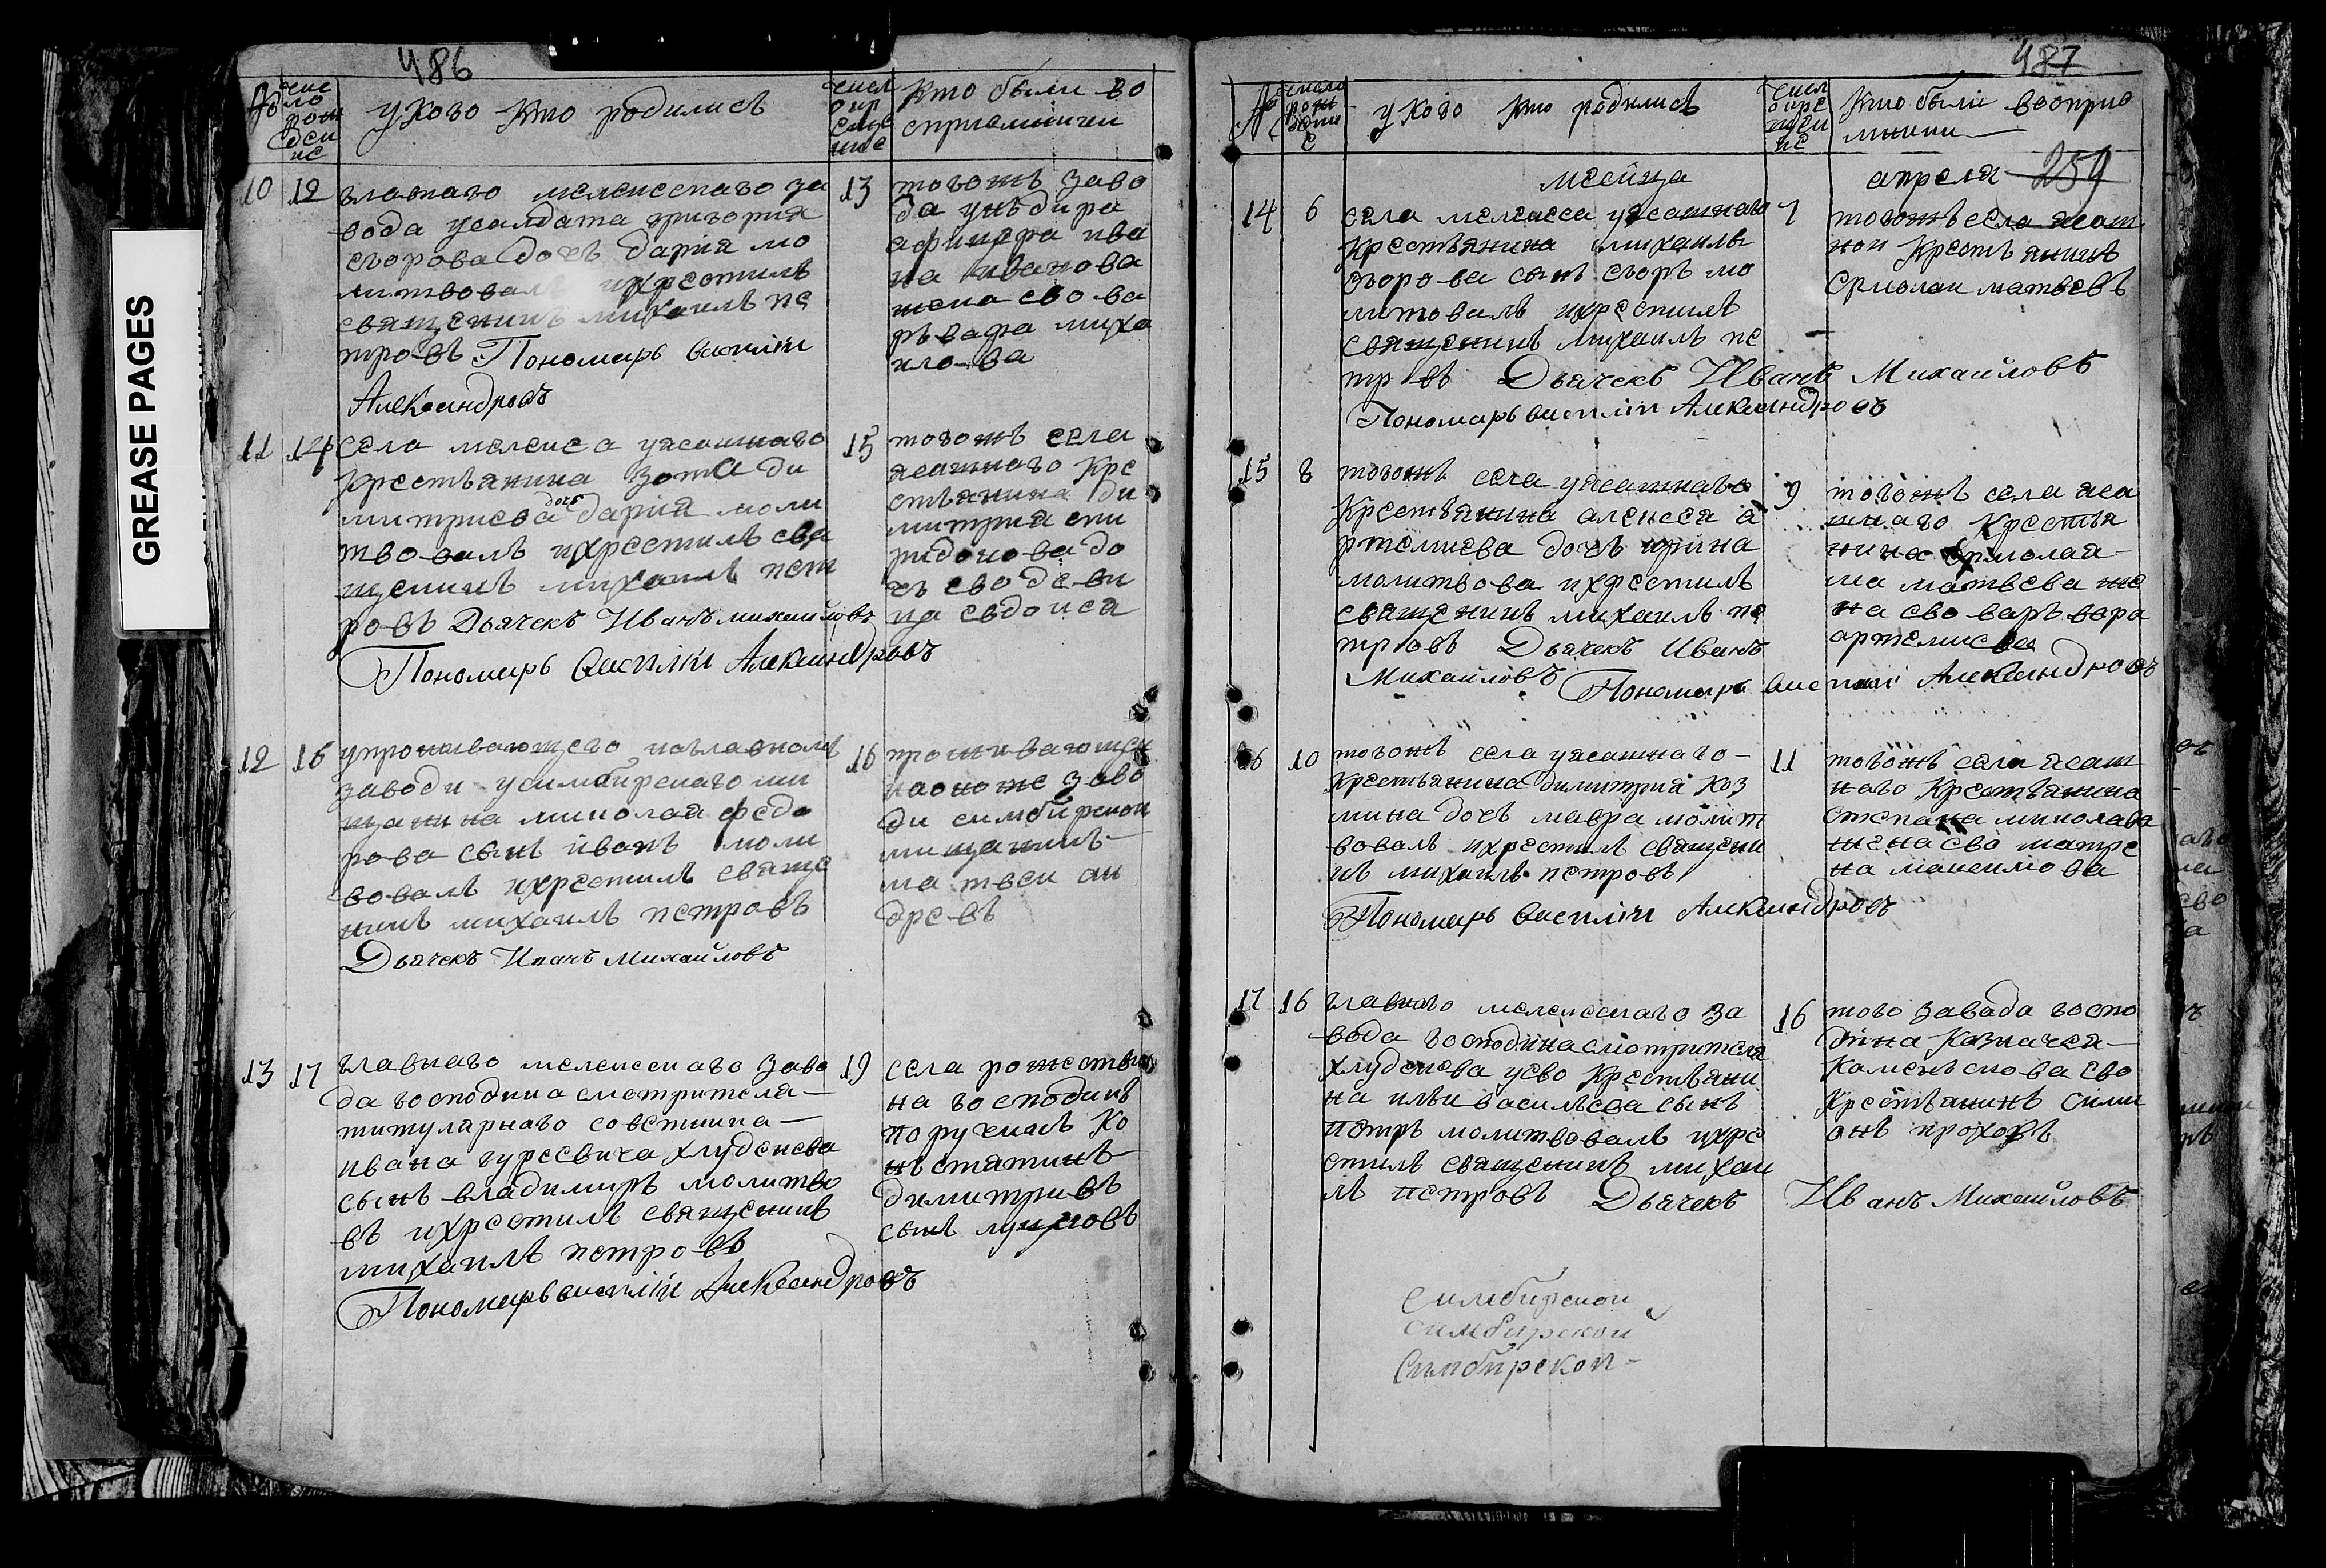 GREASE PAGES
486
№
чис
ло
рож
дени
ие
у Кого Кто родились
числ
о кр
еще
ние
Кто были во
сприемники
10 12
главнаго мелекескаго за
вода усалдата григория
егорова дочь дария мо
литвовалъ икрестилъ
священикъ михаилъ пе
тровъ Пономарь василiи
Александровъ
13
тогожъ заво
да унъдира
афицера ива
на иванова
жена ево ва
рьвара миха
илова
11 14
села мелекеса уясашнаго
крестьянина Зота ди
митриева дочь дария моли
твовалъ икрестилъ свя
щеникъ михаилъ пет
ровъ Дьячекъ Иванъ михайловъ
Пономарь Василiи Александровъ
15
тогожъ села
ясашнаго Кре
стьянина ди
митрия спи
ридонова до
чь ево деви
ца евдокея
12 15
упроживающего наглавномъ
заводи усимбирскаго ми
щанина николая федо
рова сынъ иванъ моли
вовалъ икрестилъ свяще
никъ михаилъ петровъ
Дьячекъ Иванъ Михайловъ
16
проживающеи
наономже заво
ди симбирскои
мищанинъ
матвеи ан
древъ
13 17
главнаго мелекескаго заво
да господина смотрителя
титулярнаго советника
ивана гурѣевича хлуденева
сынъ владимиръ молитво
въ икрестилъ священикъ
михаилъ петровъ
Пономарь василiи Александровъ
19
села рожестви
на господинъ
поручикъ Ко
нъстатинъ
димитривъ
сынъ
487
№
число
рож
дени
е
у Кого Кто родились
числ
о кре
щен
ие
Кто были восприе
мники
месица апреля 259
14 6
села мелекеса уясашнаго
Крестьянина михаилы
егорова сынъ егоръ мо
литовалъ икрестилъ
священикъ михаилъ пе
тр въ Дьячекъ Иванъ Михайловъ
Пономарь василiи Александровъ
7
тогожъ села ясаш
нои Крестьянинъ
Ермолаи матвеевъ
15 8
тогожъ села уясашнаго
Крестьянина алексея а
ртемиева дочь ирина
молитвова икрестилъ
священикъ михаилъ пе
тровъ Дьячекъ Иванъ
Михайловъ Пономарь василiи Александровъ
9
тогожъ села яса
шнаго Крестья
нина Ермолая
ма матвеева же
на ево варьвара
артемиева
16 10
тогожъ села уясашнаго
Крестьянина димитрия Коз
мина дочь мавра молит
вовалъ икрестилъ священи
къ михаилъ петровъ
Пономарь Василiи Александровъ
11
тогожъ села ясаш
наго Крестьянина
степана николаева
жена ево матре
на максимова
17 16
главнаго мелекескаго за
вода господина смотрителя
хлуденева уево Крестьяни
на ильи васильева сынъ
петръ молитвовалъ икре
стилъ священикъ михаи
лъ петровъ Дьячекъ Иванъ Михайловъ
16
того завада госпо
дина Казначея
Каменьскова ево
Крестьянинъ сими
онъ прохоръ
Симбирскои
симбирской
Симбирской